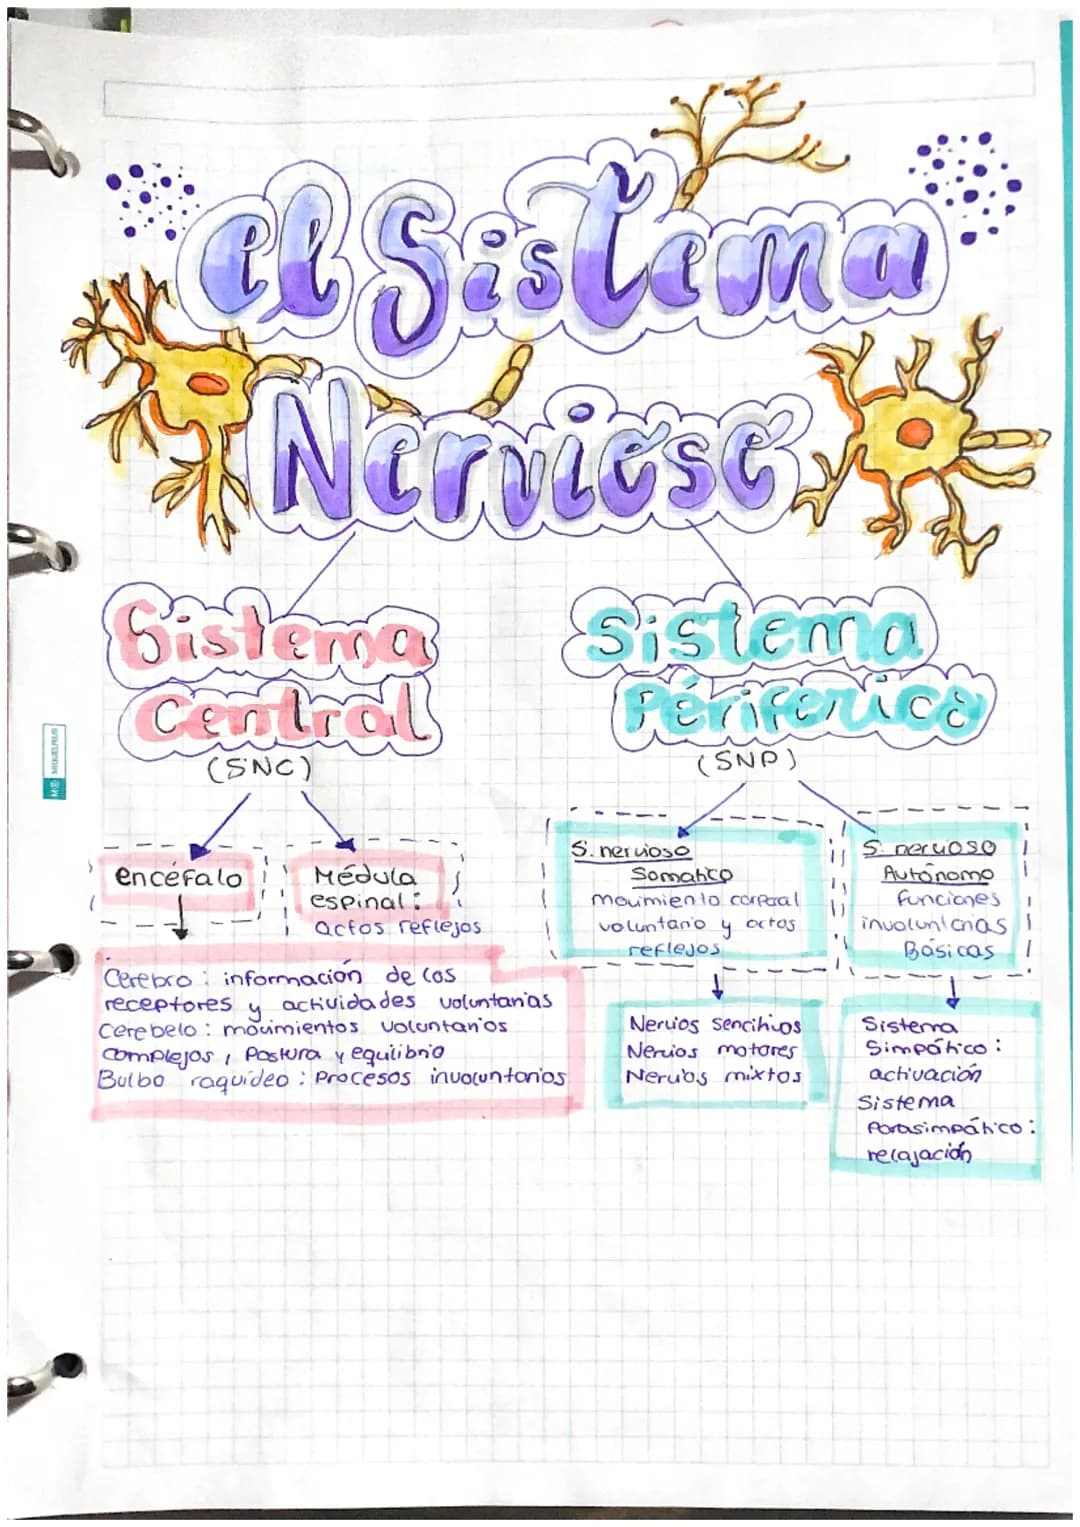 el Sistema
Nervioso
Sistema
Central
(SNC)
encéfalo
Médula
espinal:
actos reflejos
Cerebro: información de los
receptores y actividades voluntarias
Cerebelo: movimientos voluntarios
complejos, Postura y equilibrio
Bulbo raquídeo: Procesos involuntarios
Sistema
Périferico
(SNP)
S. nervioso
Somatico
movimiento corporal
voluntario y actos
reflejos
Nervios sencitivos
Nervios motores
Nervios mixtos
S. nervioso
Autónomo
funciones
involuntarias
Básicas
Sistema
Simpático:
activación
Sistema
Parasimpático:
relajación
MIQUELRIUS